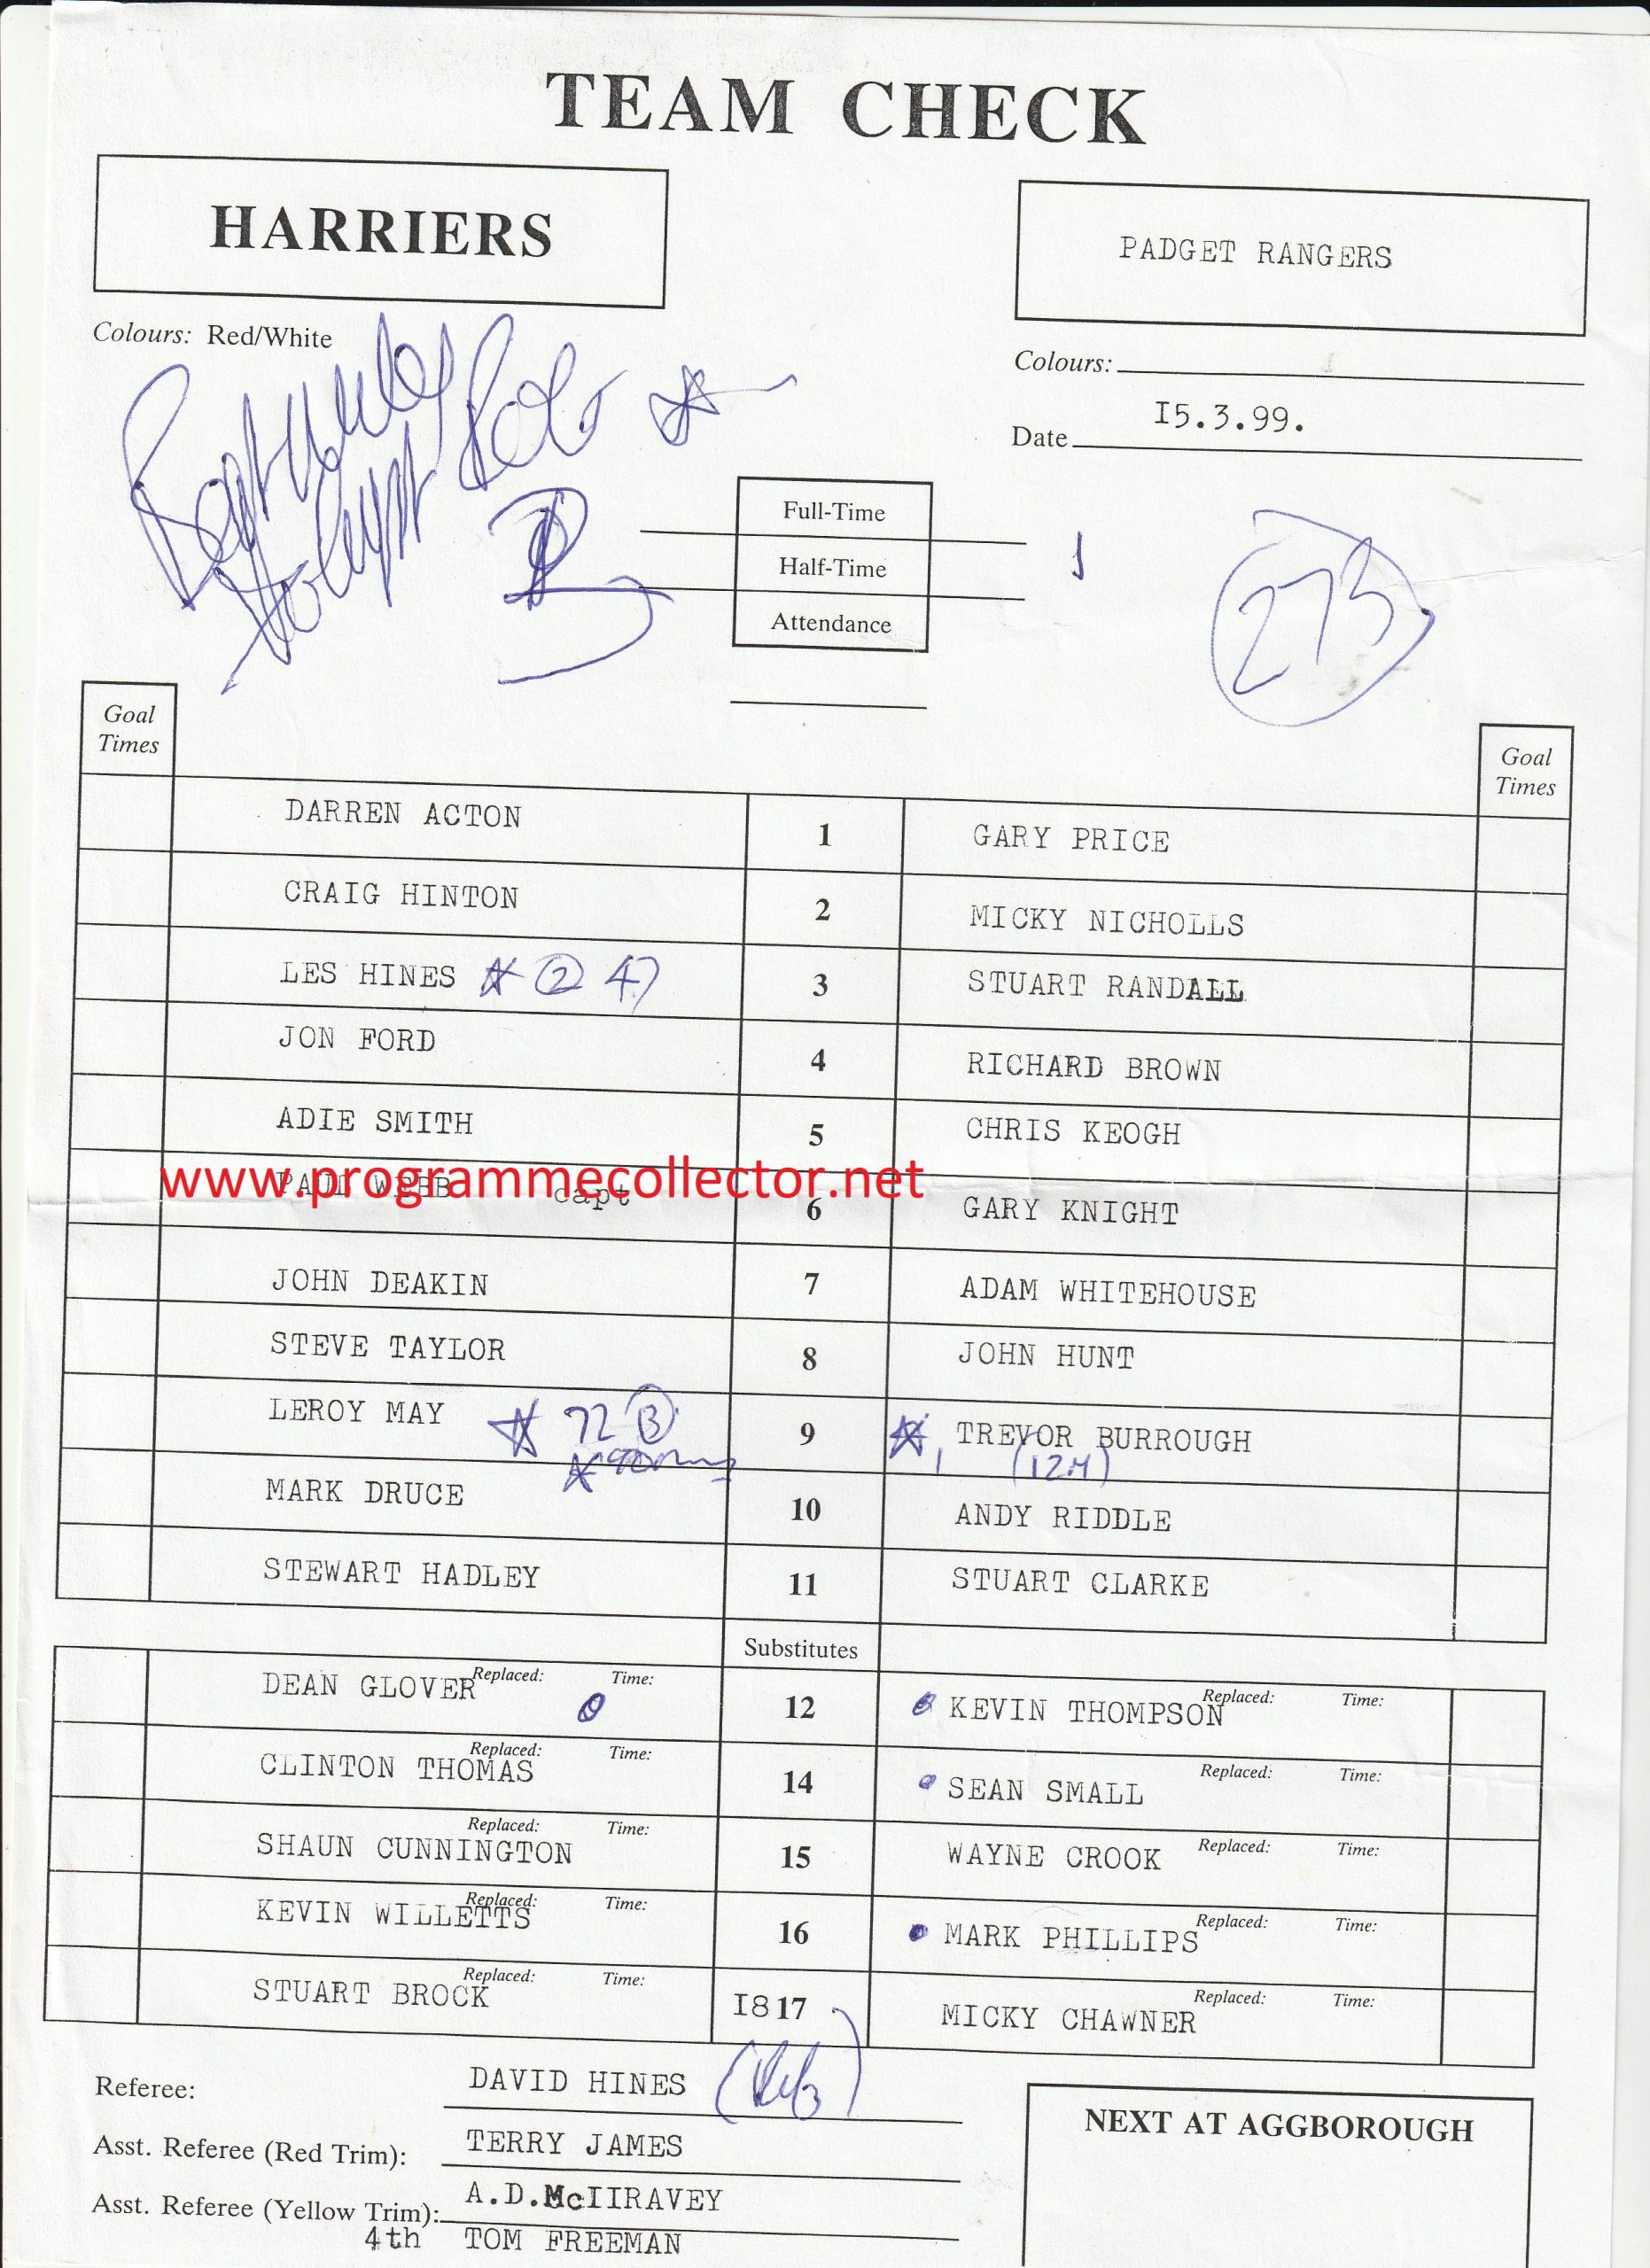 TEAM CHECK
HARRIERS
PADGET RANGERS
Colours: Red/White
Colours:
Date I5.3.99.
Full-Time
Half-Time
Attendance
273
Goal Times
Goal Times
DARREN ACTON 1 GARY PRICE
CRAIG HINTON 2 MICKY NICHOLLS
LES HINES 2 47 3 STUART RANDALL
JON FORD 4 RICHARD BROWN
ADIE SMITH 5 CHRIS KEOGH
www.programmecollector.net
PAUL WEBB capt 6 GARY KNIGHT
JOHN DEAKIN 7 ADAM WHITEHOUSE
STEVE TAYLOR 8 JOHN HUNT
LEROY MAY 72 3 9 TREVOR BURROUGH
90mins 1 (12M)
MARK DRUCE 10 ANDY RIDDLE
STEWART HADLEY 11 STUART CLARKE
Substitutes
DEAN GLOVER Replaced: Time: 12 KEVIN THOMPSON Replaced: Time:
CLINTON THOMAS Replaced: Time: 14 SEAN SMALL Replaced: Time:
SHAUN CUNNINGTON Replaced: Time: 15 WAYNE CROOK Replaced: Time:
KEVIN WILLETTS Replaced: Time: 16 MARK PHILLIPS Replaced: Time:
STUART BROCK Replaced: Time: I8 17 MICKY CHAWNER Replaced: Time:
Referee: DAVID HINES
Asst. Referee (Red Trim): TERRY JAMES
Asst. Referee (Yellow Trim): A.D.McIIRAVEY
4th TOM FREEMAN
NEXT AT AGGBOROUGH